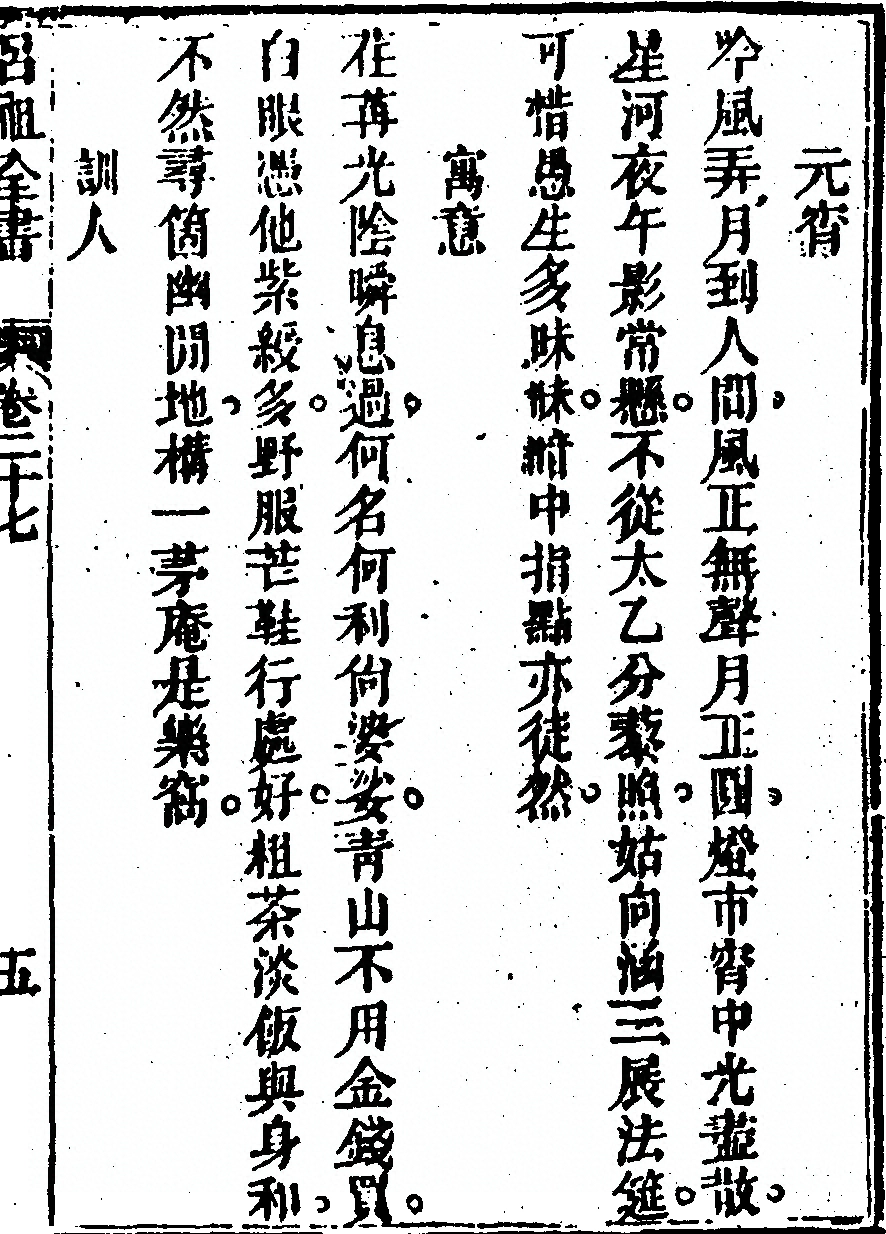 元宵
吟風弄月到人間。風正無聲月正圓。燈市宵中光盡散。
星河夜午影常懸。不從太乙分藜照。姑向涵三展法筵。
可惜愚生多昧昧。暗中指點亦徒然。
寓意
荏苒光陰瞬息過。何名何利尙婆娑。青山不用金錢買。
白眼憑他紫綬多。野服芒鞋行處好。粗茶淡飯與身和。
不然尋箇幽閒地。構一茅庵是樂窩。
訓人
呂祖全書 卷二十七 五